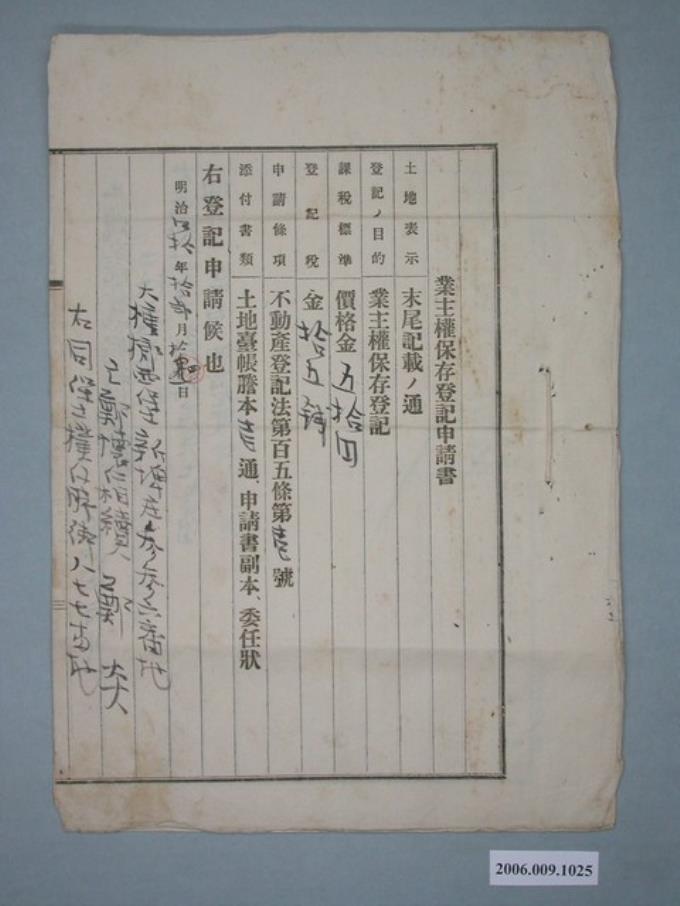 業主權保存登記申請書
土地表示 末尾記載ノ通
登記ノ目的 業主權保存登記
課稅標準 價格金五拾円
登記稅 金拾五錢
申請條項 不動產登記法第百五條第壱號
添付書類 土地臺帳謄本壱通、申請書副本、委任狀
右登記申請候也
明治四拾年拾弐月 日
大槺榔西堡新埤庄参参六番地
鄭 相續人 鄭
右同堡土樸仔脚街八七七番地
2006.009.1025